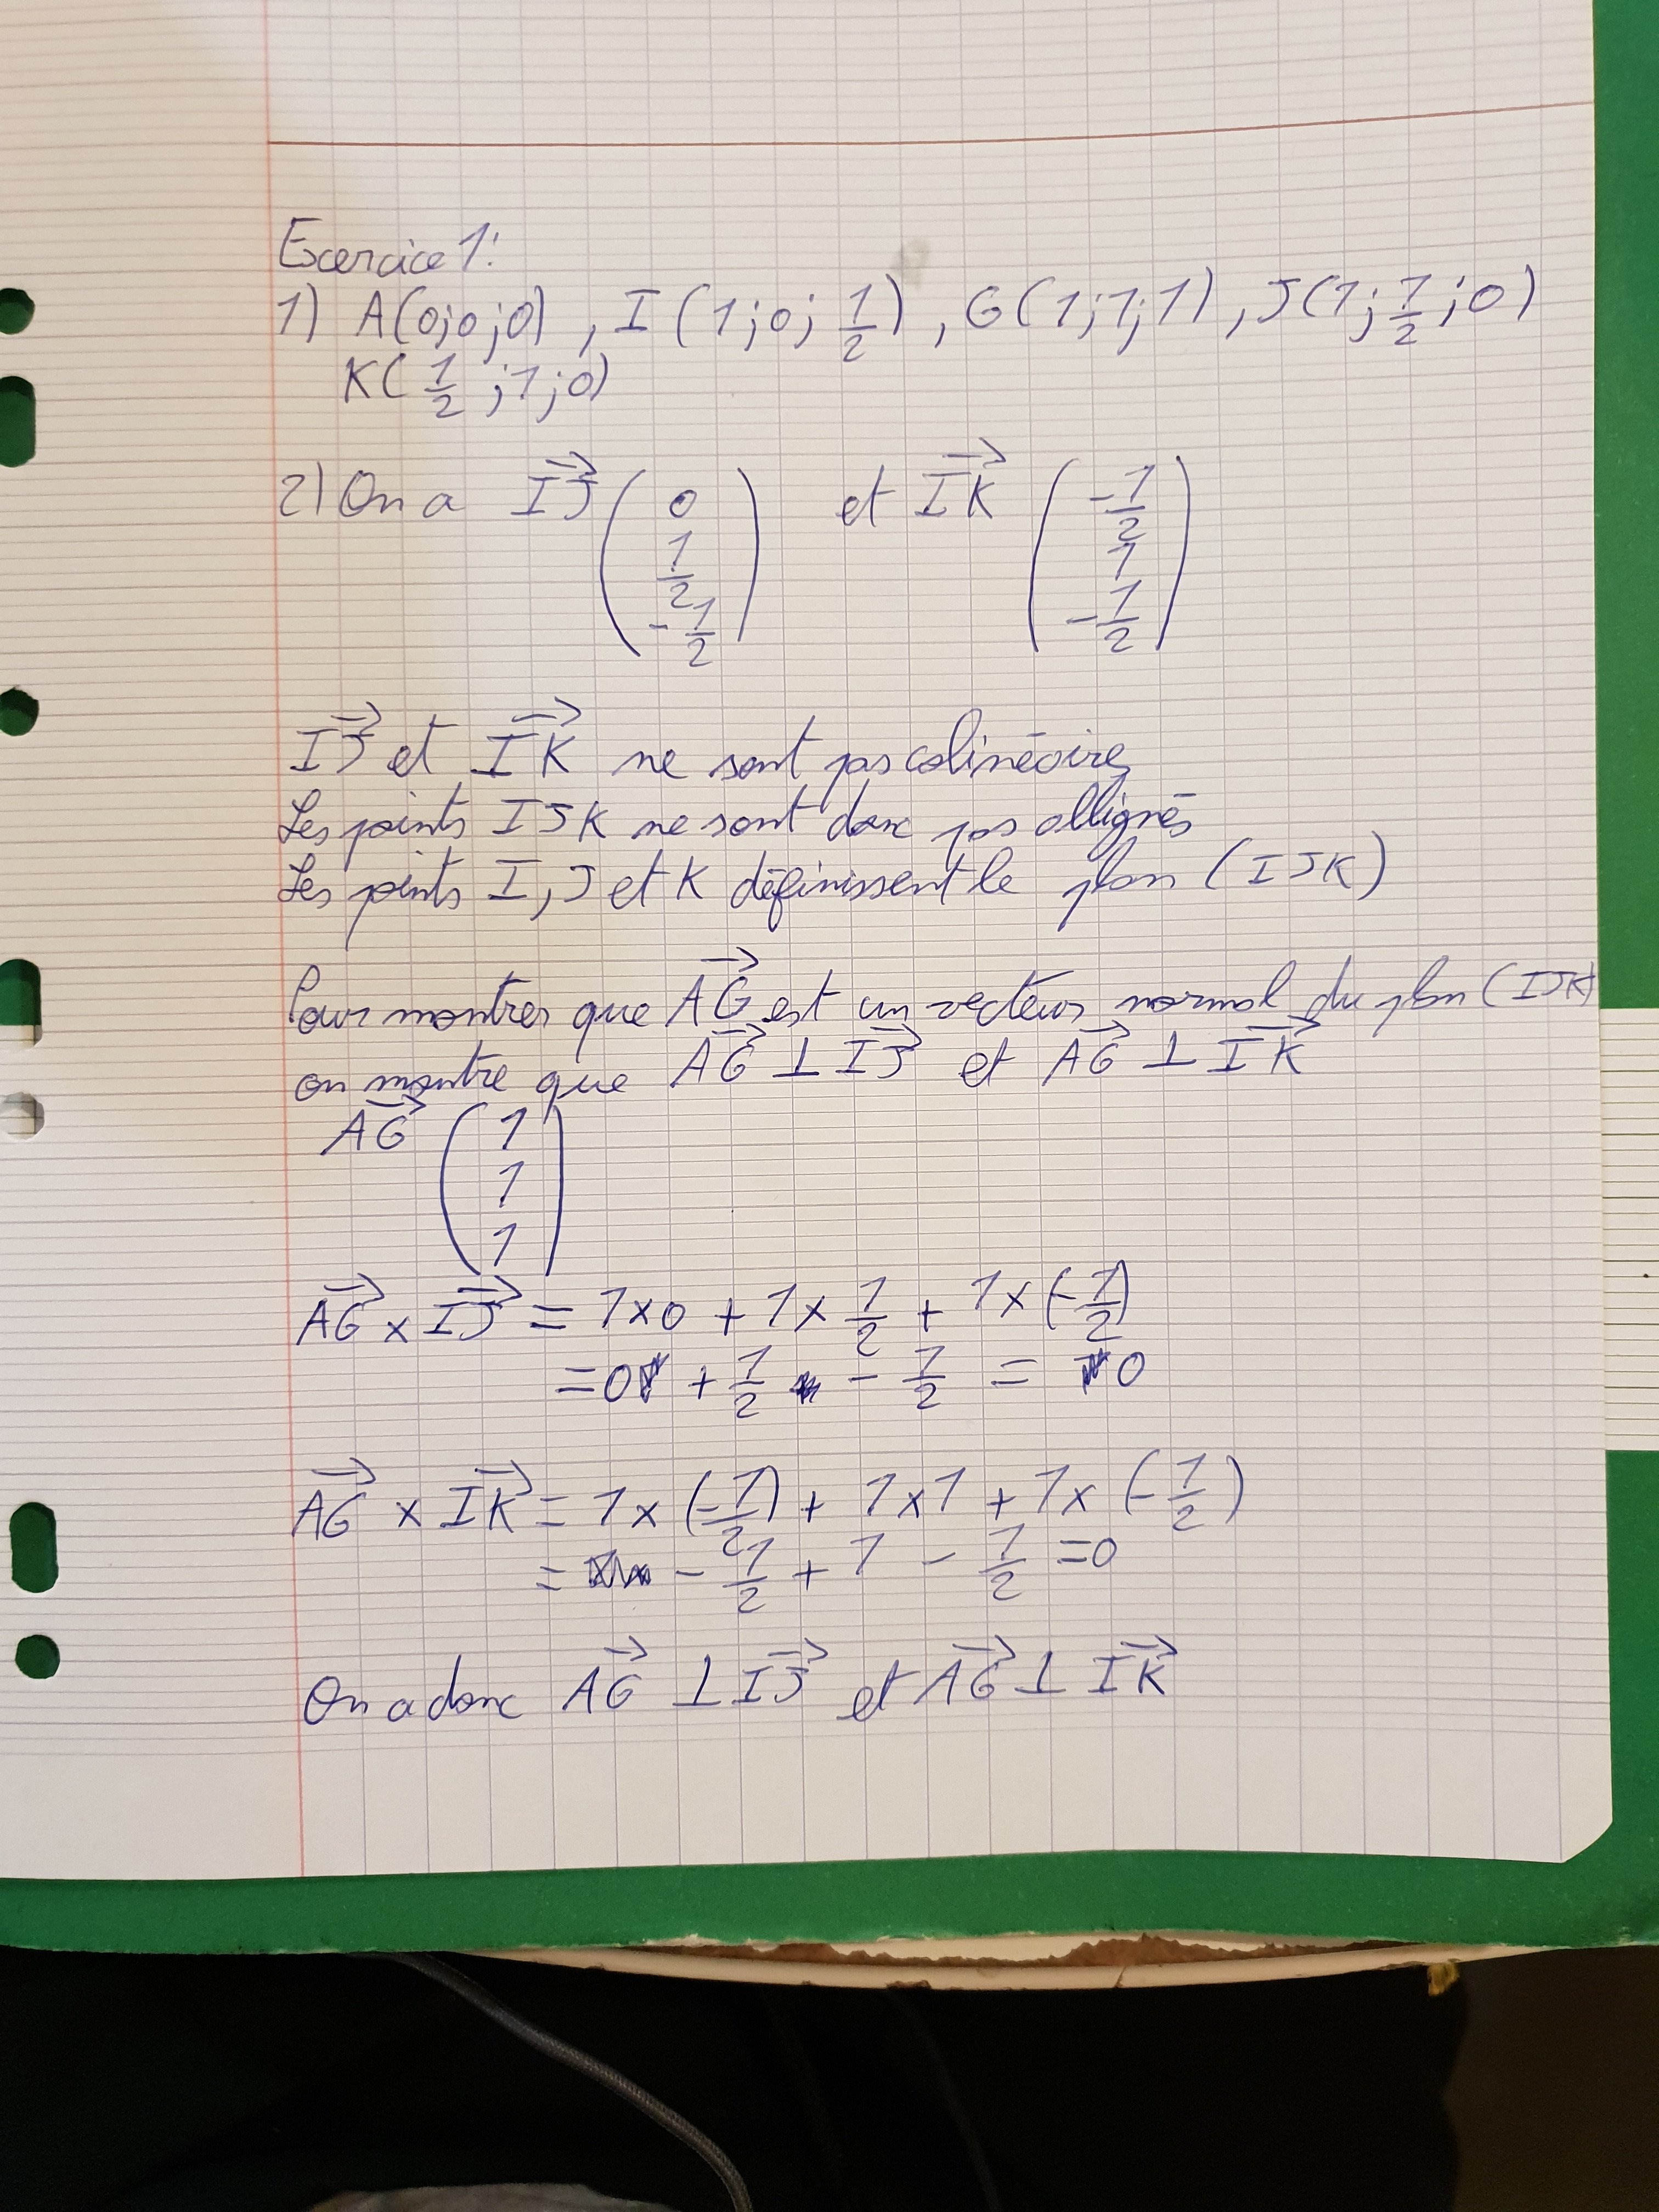 Exercice 1:
1) A(0;0;0) , I(1;0;1/2) , G(1;1;1) , J(1;1/2;0)
K(1/2;1;0)
2) On a IJ→ (0 1/2 -1/2) et IK→ (-1/2 1 -1/2)
IJ→ et IK→ ne sont pas colinéaire
Les points IJK ne sont donc pas allignés
Les points I, J et K définissent le plan (IJK)
Pour montrer que AG→ est un vecteur normal du plan (IJK)
on montre que AG→ ⊥ IJ→ et AG→ ⊥ IK→
AG→ (1 1 1)
AG→ × IJ→ = 1×0 + 1×1/2 + 1×(-1/2)
= 0 + 1/2 - 1/2 = 0
AG→ × IK→ = 1×(-1/2) + 1×1 + 1×(-1/2)
= -1/2 + 1 - 1/2 = 0
On a donc AG→ ⊥ IJ→ et AG→ ⊥ IK→